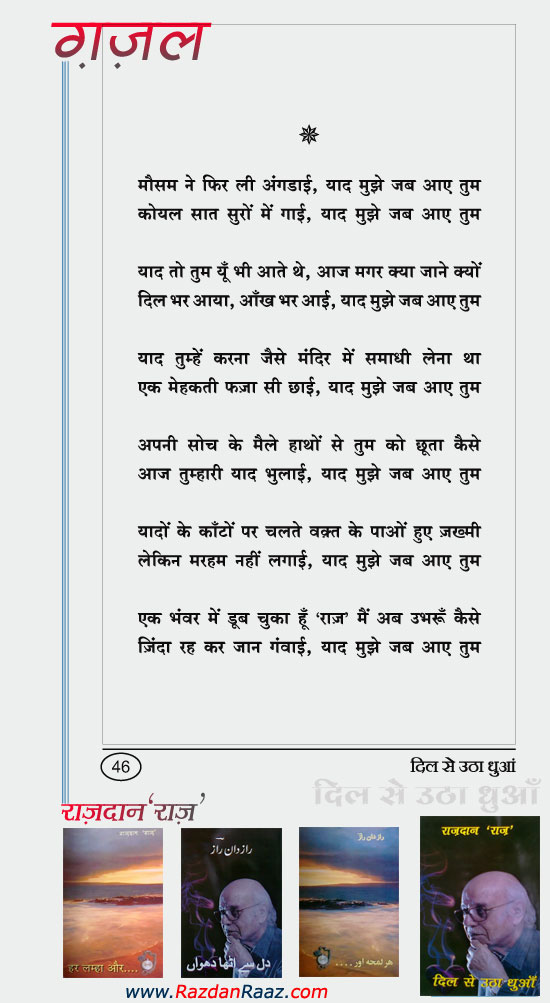 ग़ज़ल
मौसम ने फिर ली अंगडाई, याद मुझे जब आए तुम
कोयल सात सुरों में गाई, याद मुझे जब आए तुम
याद तो तुम यूँ भी आते थे, आज मगर क्या जाने क्यों
दिल भर आया, आँख भर आई, याद मुझे जब आए तुम
याद तुम्हें करना जैसे मंदिर में समाधी लेना था
एक मेहकती फज़ा सी छाई, याद मुझे जब आए तुम
अपनी सोच के मैले हाथों से तुम को छूता कैसे
आज तुम्हारी याद भुलाई, याद मुझे जब आए तुम
यादों के काँटों पर चलते वक़्त के पाओं हुए ज़ख्मी
लेकिन मरहम नहीं लगाई, याद मुझे जब आए तुम
एक भंवर में डूब चुका हूँ ‘राज़’ मैं अब उभरूँ कैसे
ज़िंदा रह कर जान गंवाई, याद मुझे जब आए तुम
46
दिल से उठा धुआं
दिल से उठा धुआँ
राज़दान ‘राज़’
राज़दान ‘राज़’
हर लम्हा और....
رازدان رازؔ
دل سے اٹھا دھواں
رازدان راز
ہر لمحہ اور....
राज़दान ‘राज़’
दिल से उठा धुआँ
www.RazdanRaaz.com